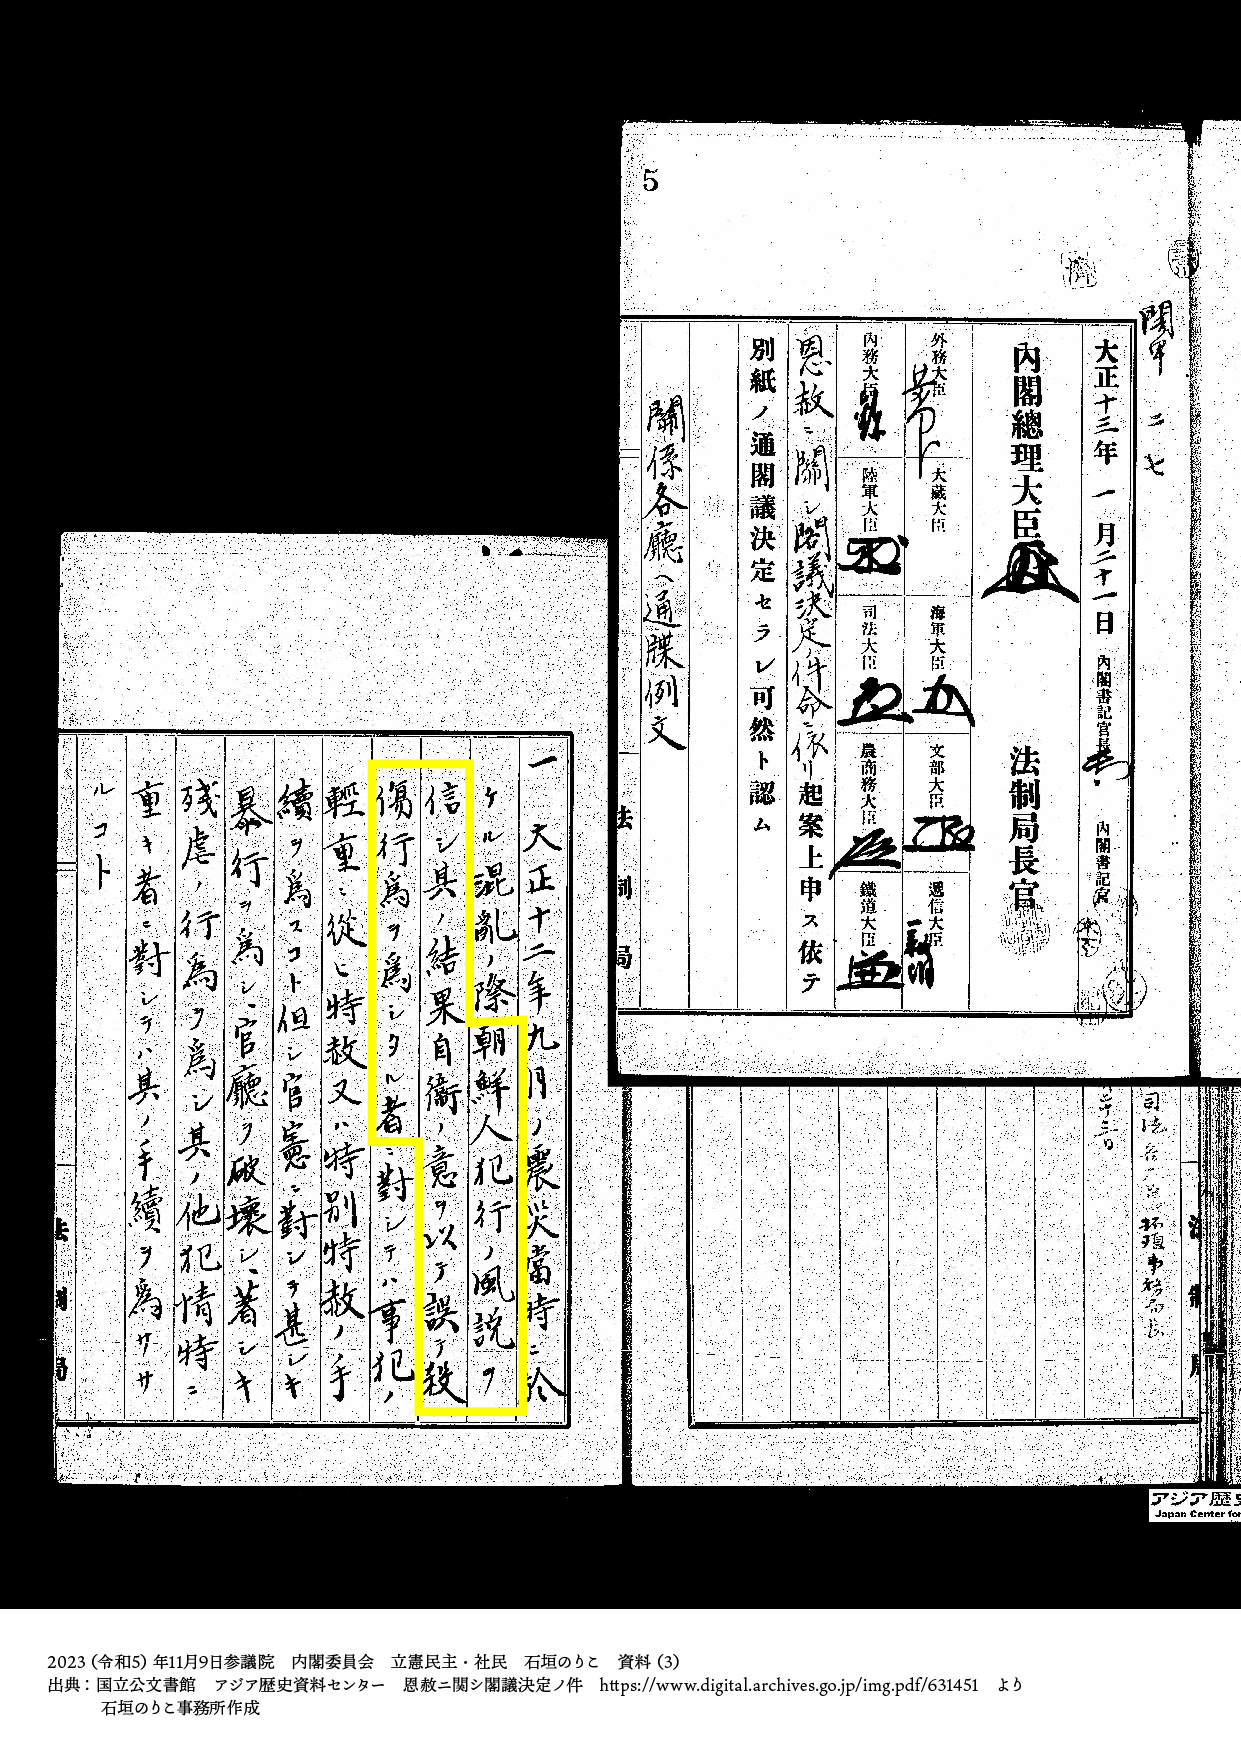 5
閣甲 二七
大正十三年 一月二十一日 內閣書記官長 內閣書記官
內閣總理大臣 法制局長官
外務大臣 大藏大臣 海軍大臣 文部大臣 遞信大臣
內務大臣 陸軍大臣 司法大臣 農商務大臣 鐵道大臣
恩赦ニ關シ閣議決定ノ件命ニ依リ起案上申ス依テ
別紙ノ通閣議決定セラレ可然ト認ム
關係各廳ヘ通牒例文
法制局
司法 事務局長
二十三日
法制局
一 大正十二年九月ノ震災當時ニ於
ケル混亂ノ際朝鮮人犯行ノ風説ヲ
信シ其ノ結果自衞ノ意ヲ以テ誤テ殺
傷行爲ヲ爲シタル者ニ對シテハ事犯ノ
輕重ニ從ヒ特赦又ハ特別特赦ノ手
續ヲ爲スコト但シ官憲ニ對シテ甚シキ
暴行ヲ爲シ、官廳ヲ破壞シ、著シキ
残虐ノ行爲ヲ爲シ其ノ他犯情特ニ
重キ者ニ對シテハ其ノ手續ヲ爲ササ
ルコト
法制局
アジア歴史
Japan Center for
2023 (令和5) 年11月9日参議院 内閣委員会 立憲民主・社民 石垣のりこ 資料 (3)
出典：国立公文書館 アジア歴史資料センター 恩赦ニ関シ閣議決定ノ件 https://www.digital.archives.go.jp/img.pdf/631451 より
石垣のりこ事務所作成